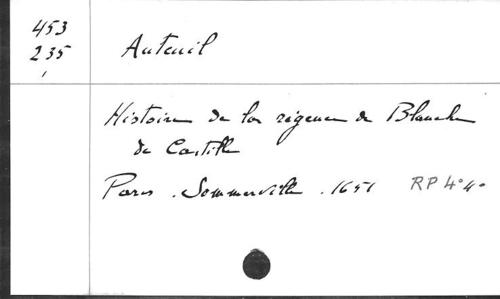 453
235
Auteuil
Histoire de la régence de Blanche
de Castille
Paris . Sommerville . 1651 RP 4° 4°